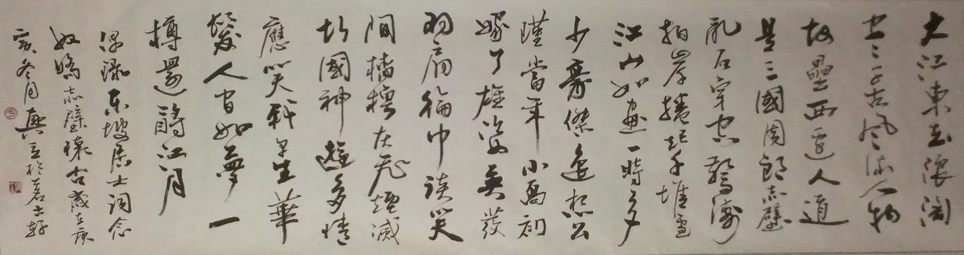 大江東去浪淘
盡千古風流人物
故壘西邊人道
是三國周郎赤壁
乱石穿空驚濤
拍岸捲起千堆雪
江山如畫一時多
少豪傑遙想公
瑾當年小喬初
嫁了雄姿英發
羽扇綸巾談笑
間檣櫓灰飛煙滅
故國神遊多情
應笑我早生華
髮人間如夢一
樽還酹江月
偶錄東坡居士詞念
奴嬌赤壁懷古歲在庚
寅冬月於軒